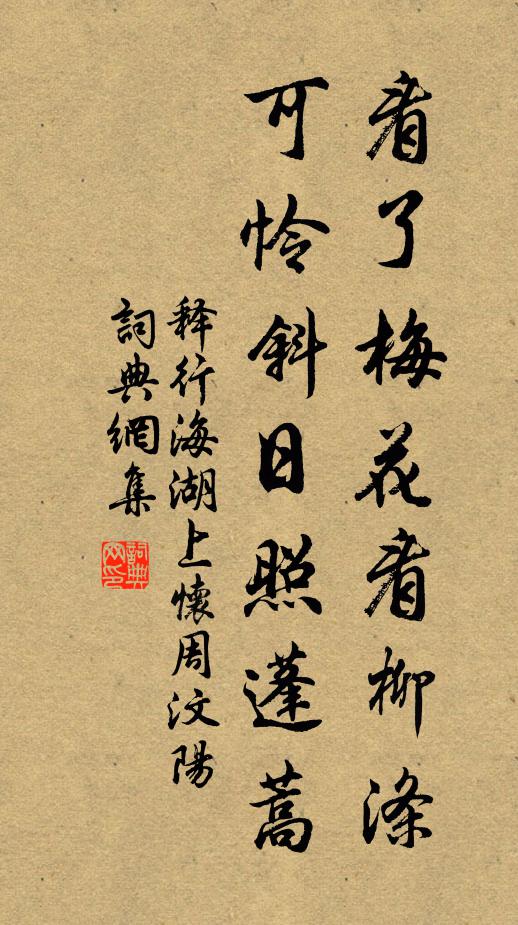 看了梅花看柳條
可怜斜日照蓬蒿
释行海湖上懷周汶陽
詞典網集
詞典
网印